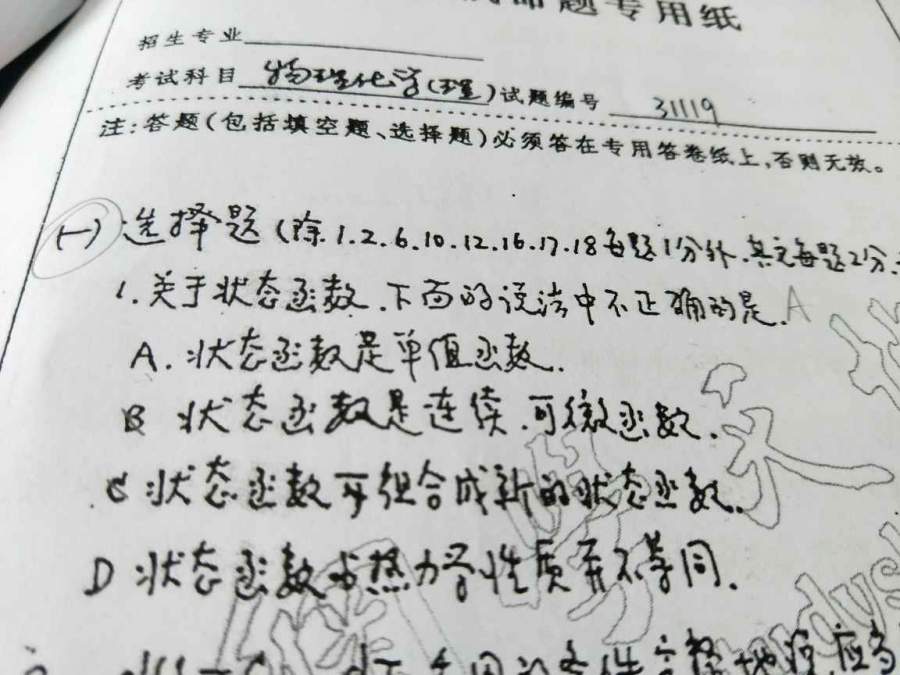 命题专用纸
招生专业
考试科目 物理化学(理) 试题编号 31119
注:答题(包括填空题、选择题)必须答在专用答卷纸上,否则无效。
(一) 选择题 (除1.2.6.10.12.16.17.18每题1分外.其它每题2分.
1. 关于状态函数.下面的说法中不正确的是. A
A. 状态函数是单值函数.
B 状态函数是连续.可微函数.
C 状态函数可组合成新的状态函数.
D 状态函数与热力学性质并不等同.